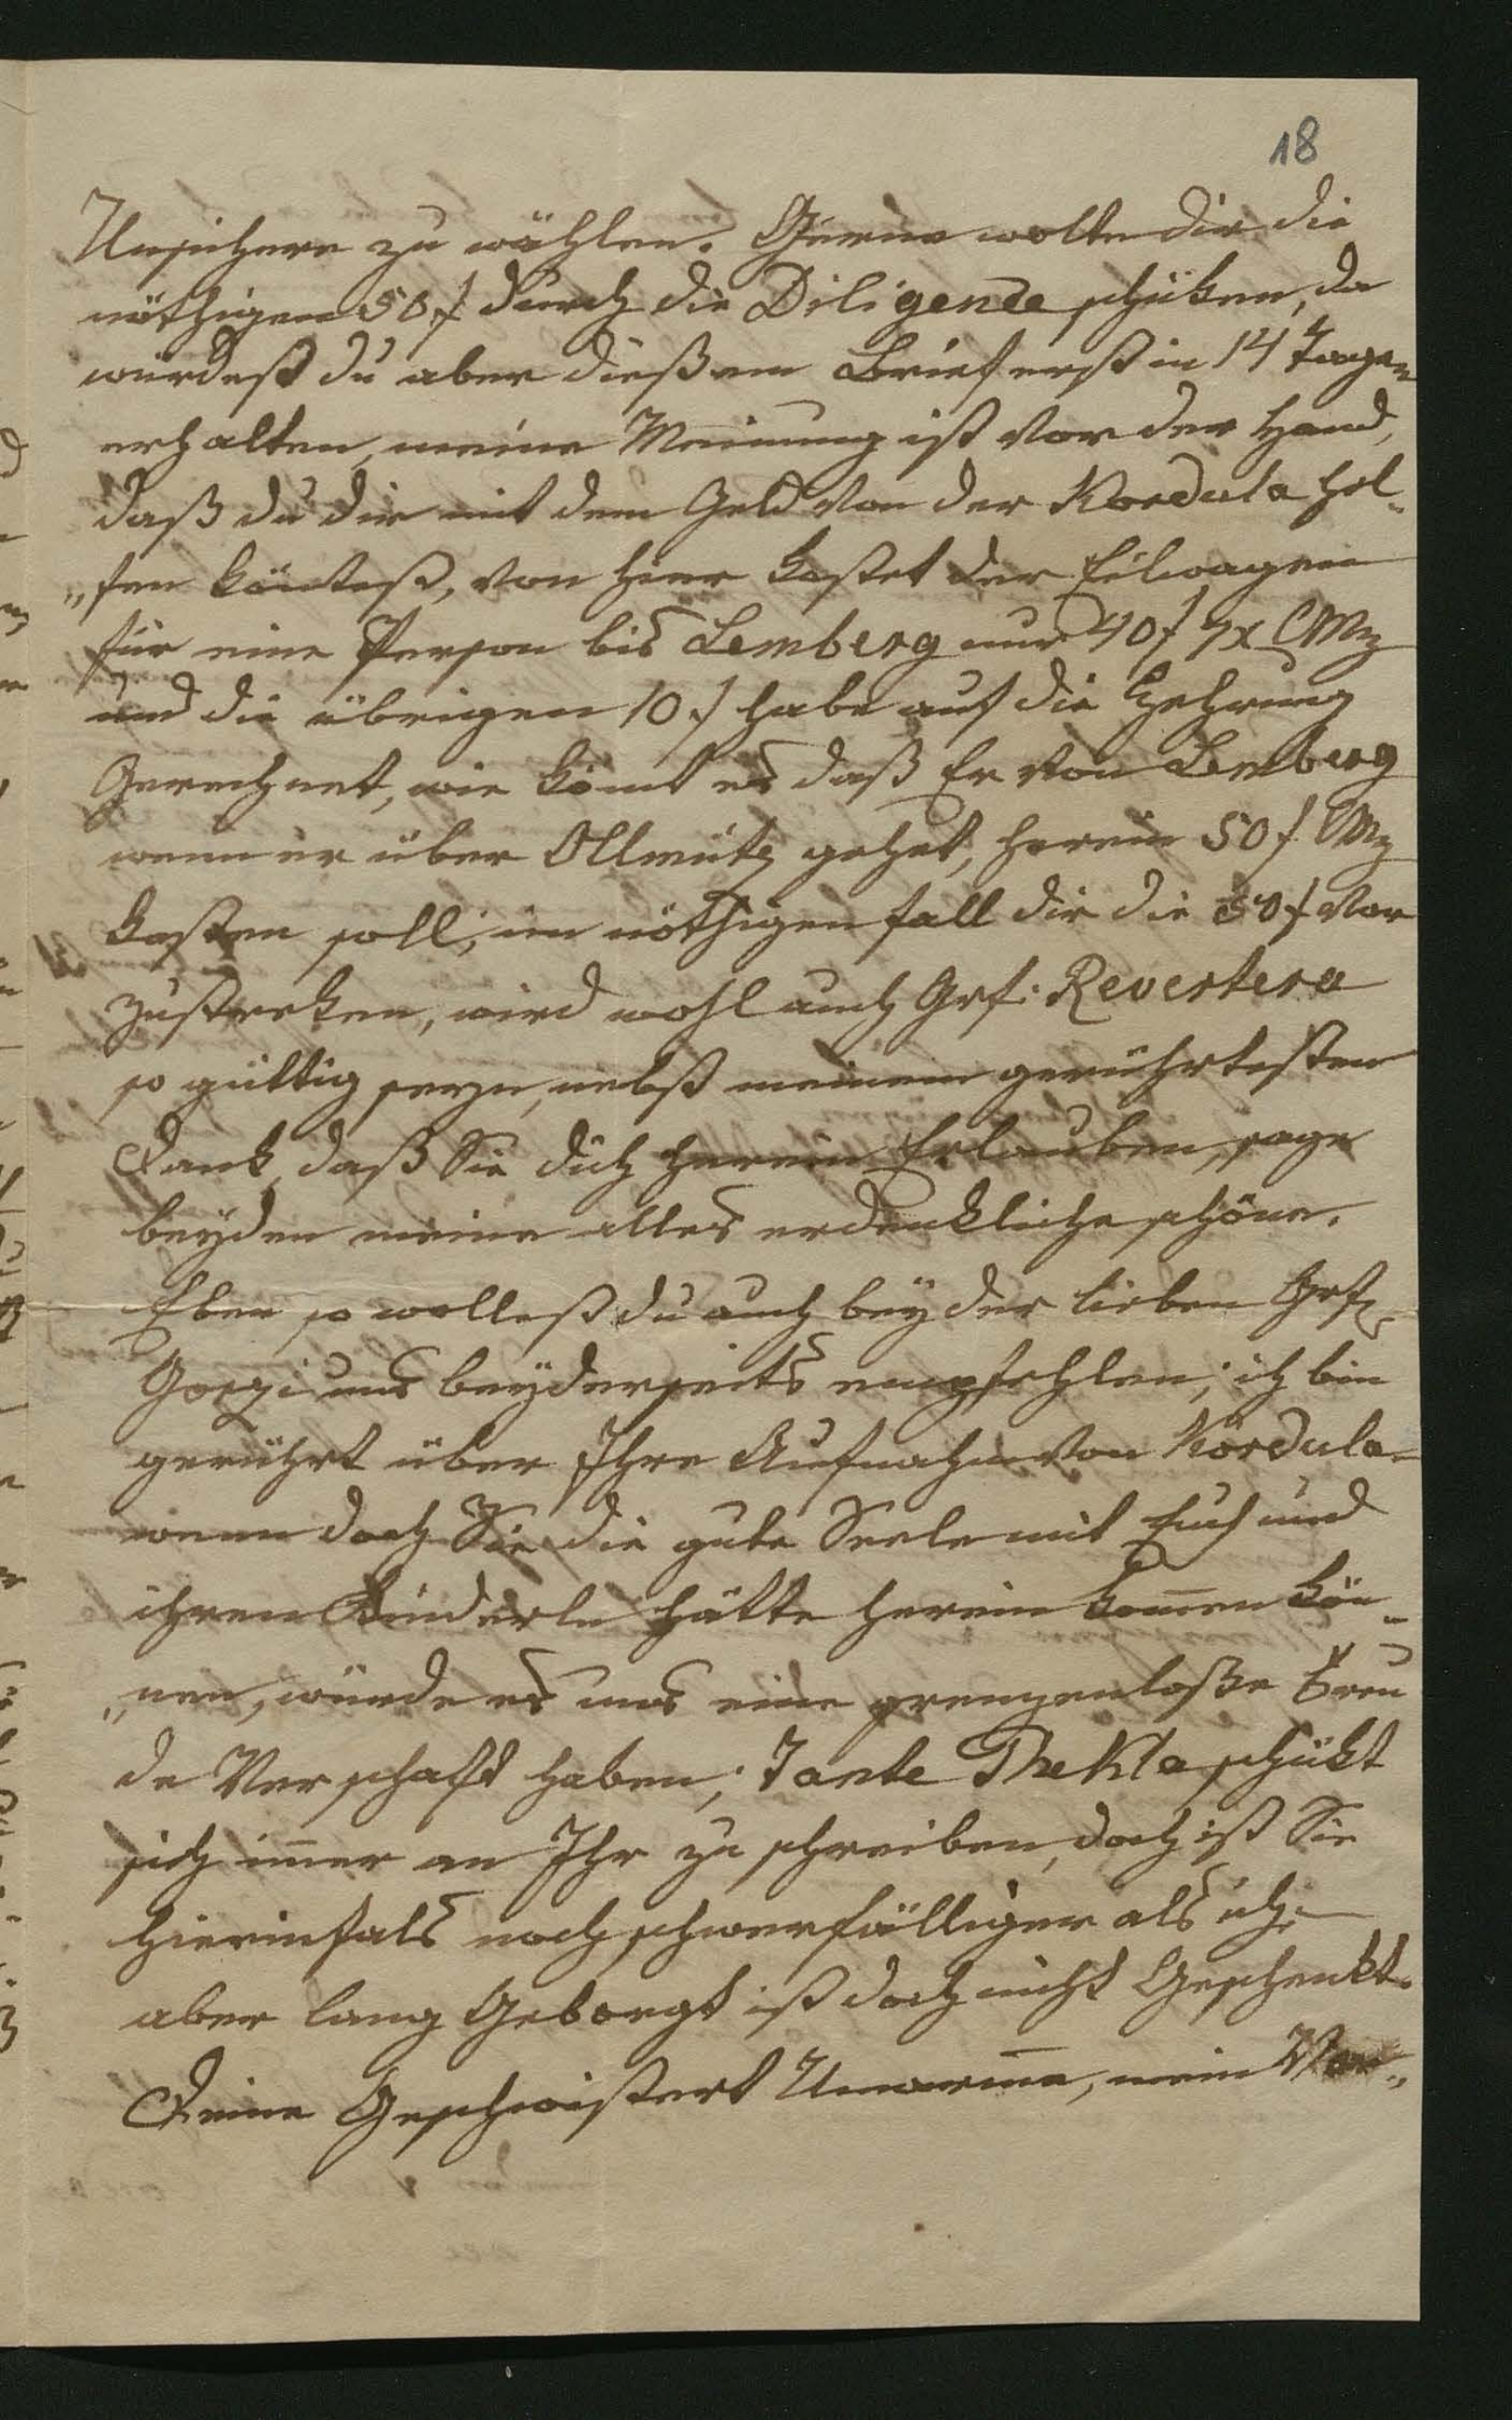 18
Unsichere zu wählen. Gerne wollte dir die
nöthigen 50 f durch die Diligence schüken, da
würdest du aber dießen Brief erst in 14 Tagen
erhalten, meine Meinung ist vor der Hand,
daß du dir mit dem Geld von der Kordula hel-
„fen köntest, von hier kostet der Eilwagen
für eine Person bis Lemberg nur 40 f 7x CMz
und die übrigen 10 f habe auf die Zehrung
Gerechnet, wie kömt es daß Er von Lemberg
wenn er über Ollmütz gehet, herein 50 f CMz
kosten soll, im nöthigen fall dir die 50 f vor
zustreken, wird wohl auch Grf: Revertera
so güttig seyn, nebst meinem gerührtesten
Dank, daß Sie dich herein Erlauben, sage
beyden meine alles erdenkliche schöne.
Eben so wollest du auch bey der lieben Grf
uns beyderseits empfehlen, ich bin
gerührt über Ihre Aufnahm von Kordula
wenn doch Sie die gute Seele mit Euch und
ihren Kinderln hätte herein komen kön-
„nen, würde es uns eine grenzenloße Freu
de Verschaft haben, Tante Thekla schükt
sich imer an Ihr zu schreiben, doch ist Sie
hierinfals noch schwerfälliger als ich,
aber lang Geborgt ist doch nicht Geschenkt.
Deine Geschwistert Umarme, mein